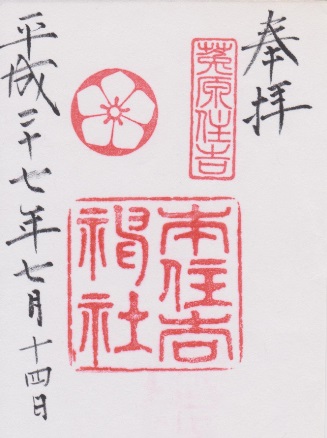 奉拝
菟原住吉
本住吉
神社
平成二十七年七月十四日